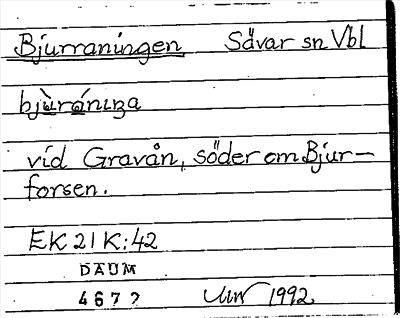 Bjurraningen Sävar sn Vbl
bjùrániŋa
vid Gravån, söder om Bjur-
forsen.
EK 21 K:42
DAUM
4672
1992